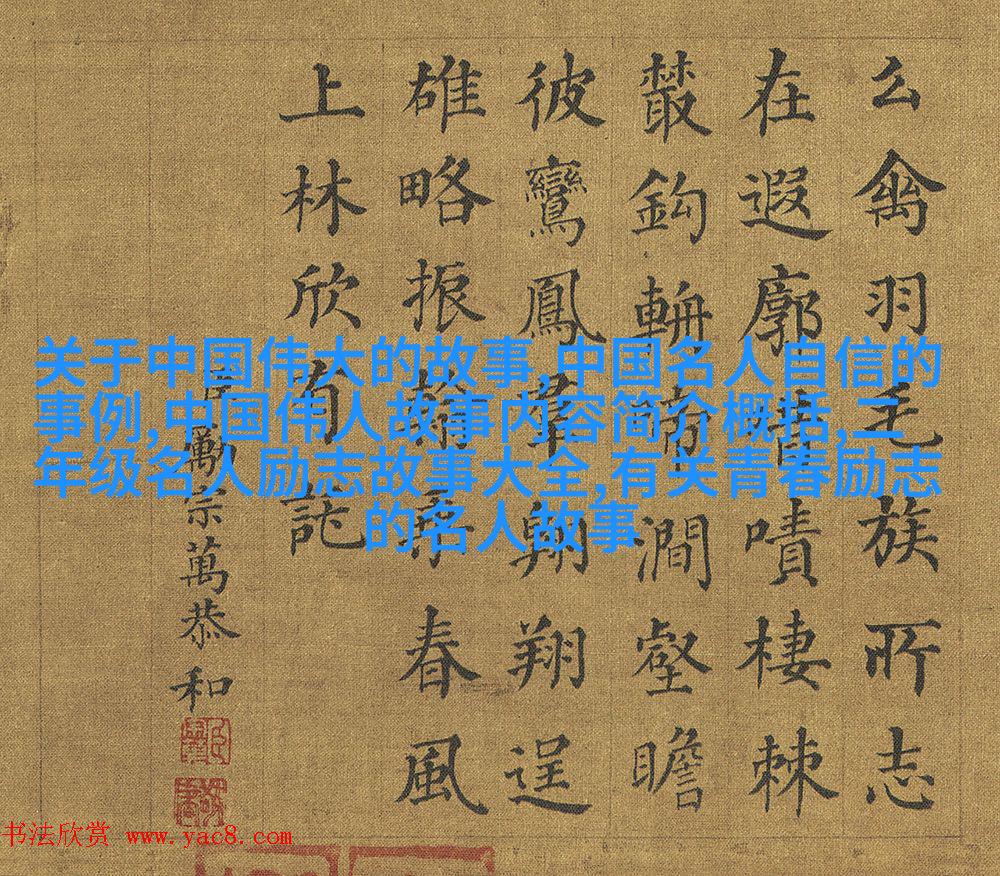 么禽羽毛族所志
在遐廓昔嘖棲棘
叢鈎輈啼澗壑瞻
彼鸞鳳羣翱翔逞
雄略振翰春風
上林欣有託
臣勵宗萬恭和
关于中国伟大的故事,中国名人自信的
事例,中国伟人故事内容简介概括,二
年级名人励志故事大全,有关青春励志
的名人故事
书法欣赏 www.yac8.com